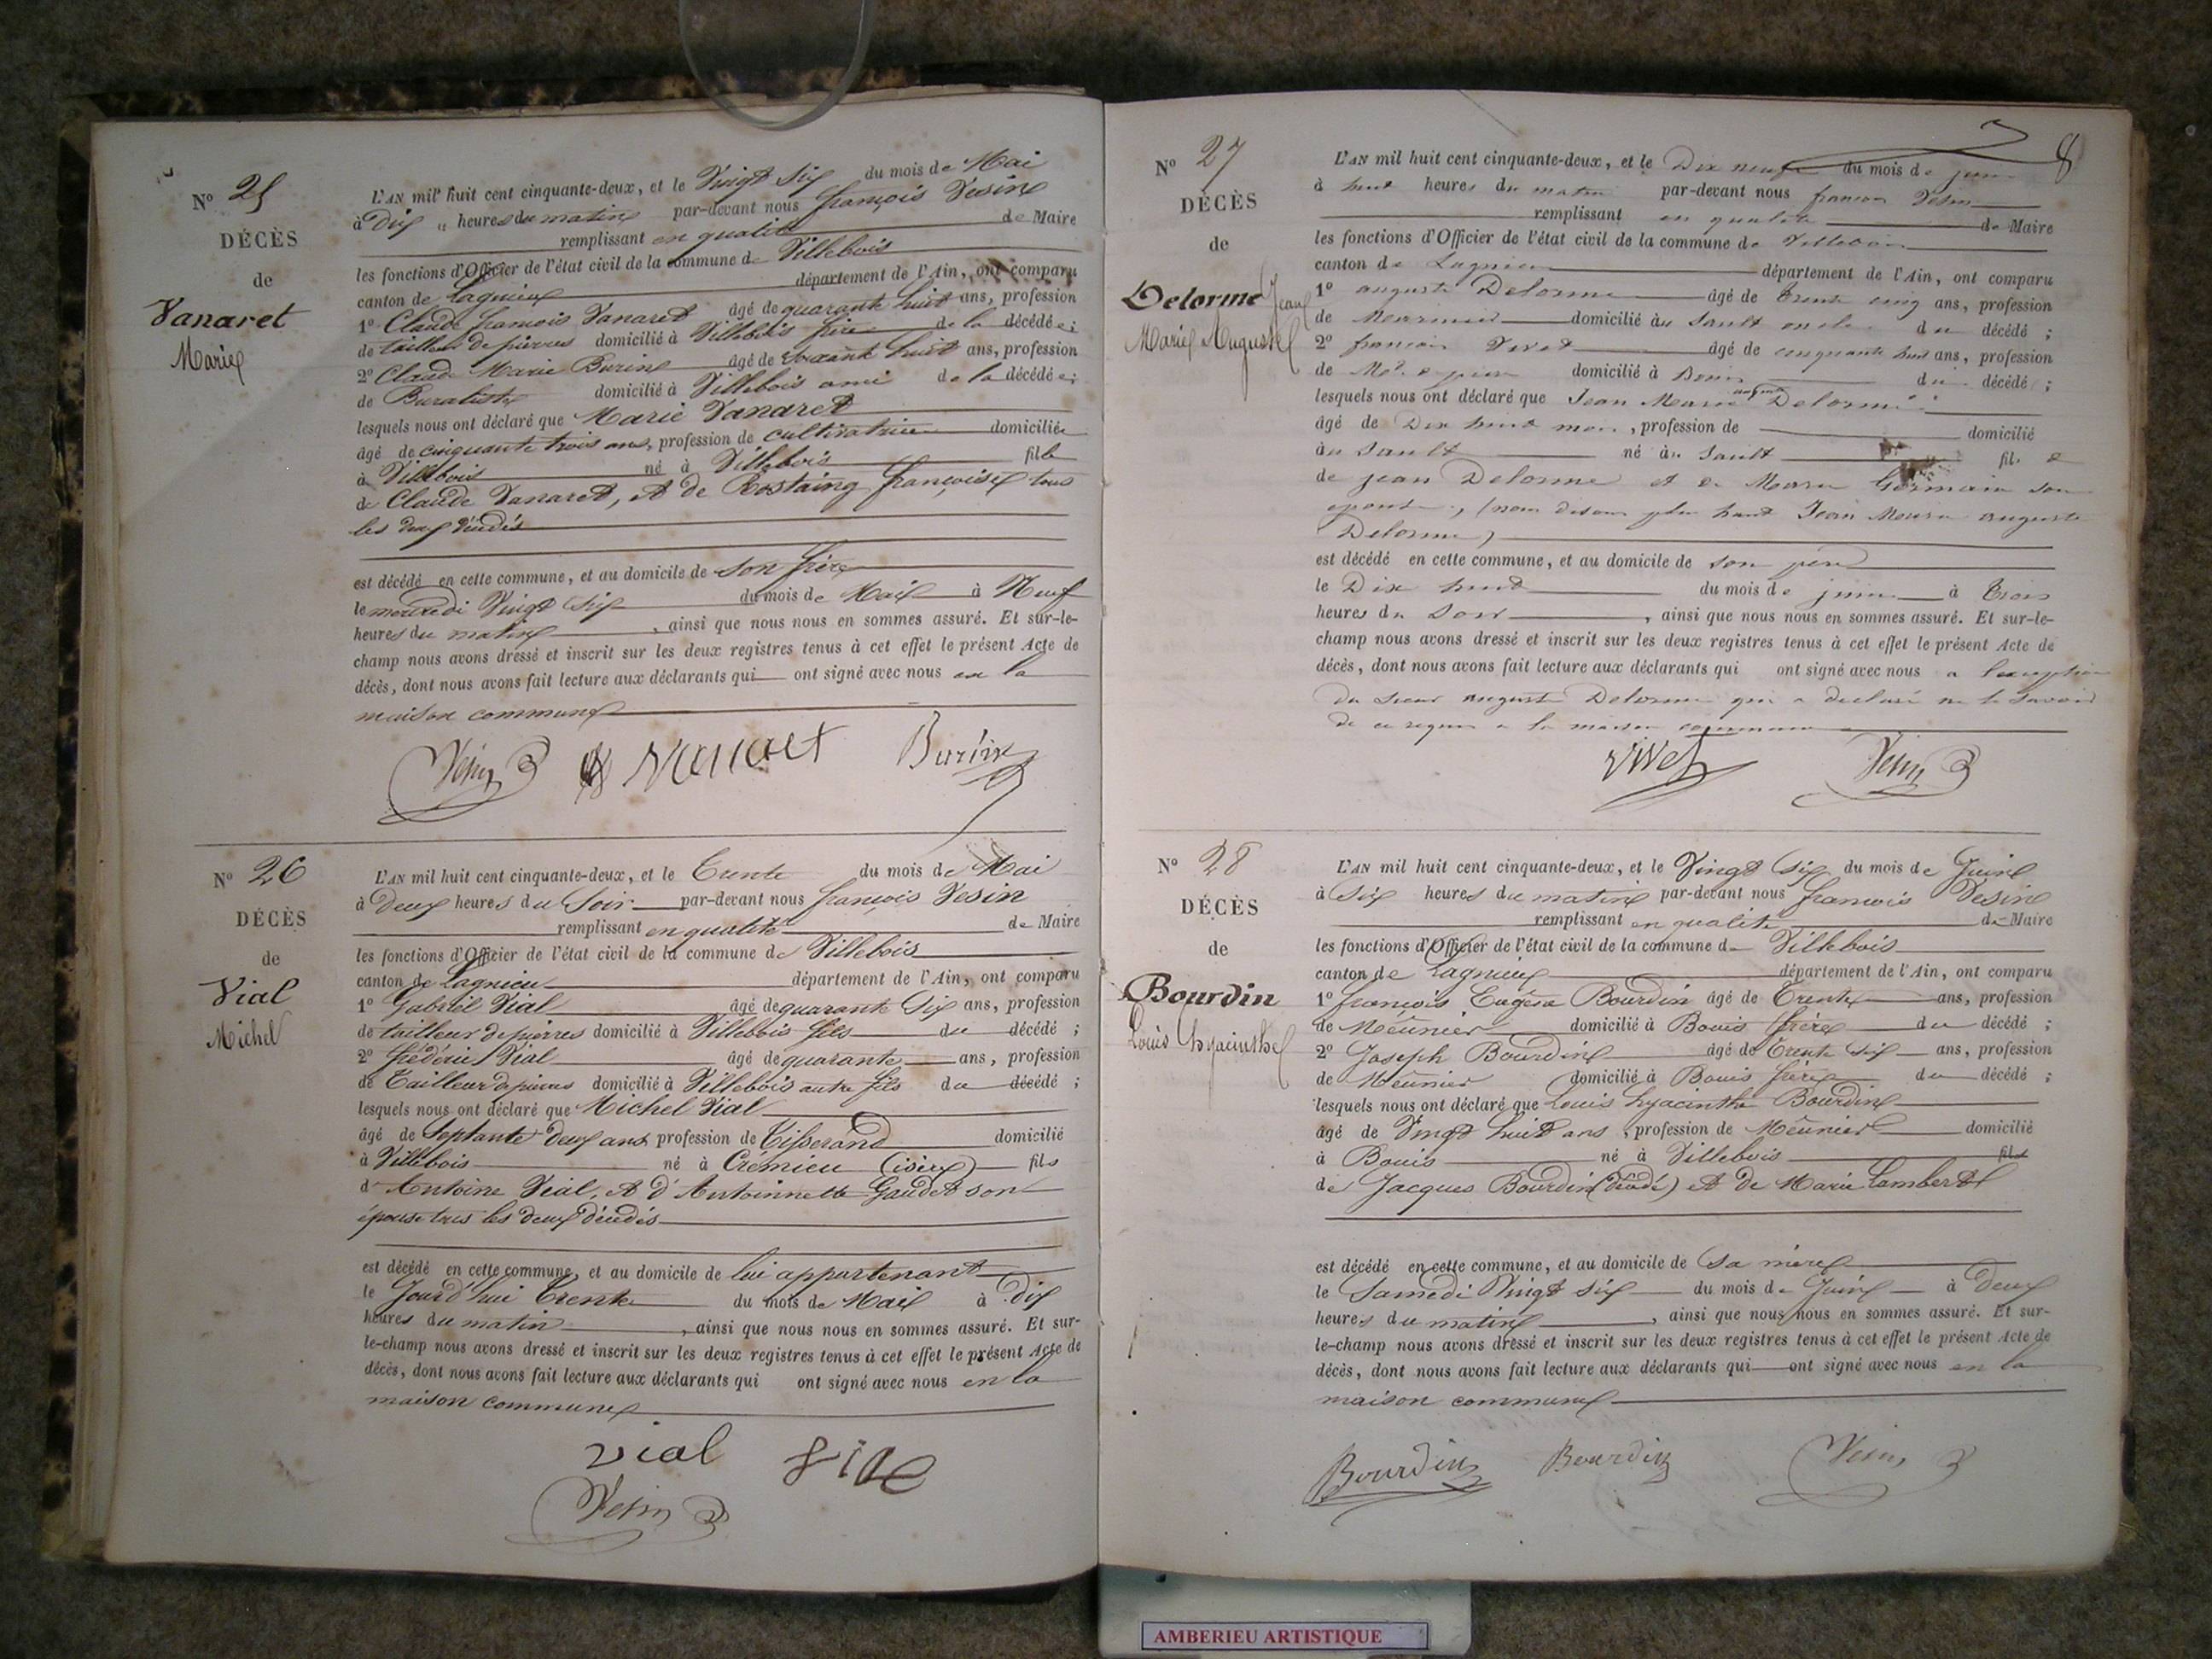 N° 25
DÉCÈS
de
Vanaret
Marie
L'AN mil huit cent cinquante-deux, et le Vingt Six du mois de Mai
à Dix heures du matin par-devant nous françois Vesin
remplissant en qualité de Maire
les fonctions d'Officier de l'état civil de la commune de Villebois
canton de Lagnieu département de l'Ain, ont comparu
1° Claude françois Vanaret âgé de quarante huit ans, profession
de tailleur de pierres domicilié à Villebois frère de la décédée;
2° Claude Marie Burin âgé de soixante huit ans, profession
de Buraliste domicilié à Villebois ami de la décédée;
lesquels nous ont déclaré que Marie Vanaret
âgé de cinquante trois ans, profession de cultivatrice domiciliée
à Villebois né à Villebois fille
de Claude Vanaret, et de Rostaing françoise tous
les deux décédés
est décédé en cette commune, et au domicile de son frère
le mercredi Vingt Six du mois de Mai à Neuf
heures du matin, ainsi que nous nous en sommes assuré. Et sur-le-
champ nous avons dressé et inscrit sur les deux registres tenus à cet effet le présent Acte de
décès, dont nous avons fait lecture aux déclarants qui ont signé avec nous en la
maison commune
Vesin Burin
N° 26
DÉCÈS
de
Vial
Michel
L'AN mil huit cent cinquante-deux, et le Trente du mois de Mai
à Deux heures du Soir par-devant nous françois Vesin
remplissant en qualité de Maire
les fonctions d'Officier de l'état civil de la commune de Villebois
canton de Lagnieu département de l'Ain, ont comparu
1° Gabriel Vial âgé de quarante Six ans, profession
de tailleur de pierres domicilié à Villebois fils du décédé;
2° frédéric Vial âgé de quarante ans, profession
de Tailleur de pierres domicilié à Villebois autre fils du décédé;
lesquels nous ont déclaré que Michel Vial
âgé de Septante Deux ans profession de Tisserand domicilié
à Villebois né à Crémieu (isère) fils
d'Antoine Vial, et d'Antoinnette Gaudet son
épouse tous les deux décédés
est décédé en cette commune, et au domicile de lui appartenant
le Jourd'hui Trente du mois de Mai à Dix
heures du matin, ainsi que nous nous en sommes assuré. Et sur-
le-champ nous avons dressé et inscrit sur les deux registres tenus à cet effet le présent Acte de
décès, dont nous avons fait lecture aux déclarants qui ont signé avec nous en la
maison commune
vial
Vesin
8
N° 27
DÉCÈS
de
Delorme Jean
Marie Auguste
L'AN mil huit cent cinquante-deux, et le Dix neuf du mois de juin
à huit heures du matin par-devant nous françois Vesin
remplissant en qualité de Maire
les fonctions d'Officier de l'état civil de la commune de Villebois
canton de Lagnieu département de l'Ain, ont comparu
1° auguste Delorme âgé de trente cinq ans, profession
de Marinier domicilié au Sault oncle du décédé;
2° françois Vivet âgé de cinquante huit ans, profession
de domicilié à Bouis du décédé;
lesquels nous ont déclaré que Jean Marie auguste Delorme
âgé de Dix huit mois, profession de domicilié
au Sault né au Sault fils
de jean Delorme et de Marie Germain son
épouse, (nous disons plus haut Jean Marie auguste
Delorme)
est décédé en cette commune, et au domicile de son père
le Dix huit du mois de juin à Trois
heures du Soir, ainsi que nous nous en sommes assuré. Et sur-le-
champ nous avons dressé et inscrit sur les deux registres tenus à cet effet le présent Acte de
décès, dont nous avons fait lecture aux déclarants qui ont signé avec nous a l'exception
du sieur auguste Delorme qui a déclaré ne le savoir
de ce requis a la maison commune
Vivet Vesin
N° 28
DÉCÈS
de
Bourdin
Louis hyacinthe
L'AN mil huit cent cinquante-deux, et le Vingt Six du mois de Juin
à Six heures du matin par-devant nous françois Vesin
remplissant en qualité de Maire
les fonctions d'Officier de l'état civil de la commune de Villebois
canton de Lagnieu département de l'Ain, ont comparu
1° françois Eugène Bourdin âgé de Trente ans, profession
de Meûnier domicilié à Bouis frère du décédé;
2° Joseph Bourdin âgé de Trente Six ans, profession
de Meûnier domicilié à Bouis frère du décédé;
lesquels nous ont déclaré que Louis hyacinthe Bourdin
âgé de Vingt huit ans, profession de Meûnier domicilié
à Bouis né à Villebois fils
de Jacques Bourdin (décédé) et de Marie Lambert
est décédé en cette commune, et au domicile de Sa mère
le Samedi Vingt Six du mois de Juin à Deux
heures du matin, ainsi que nous nous en sommes assuré. Et sur-
le-champ nous avons dressé et inscrit sur les deux registres tenus à cet effet le présent Acte de
décès, dont nous avons fait lecture aux déclarants qui ont signé avec nous en la
maison commune
Bourdin Bourdin Vesin
AMBERIEU ARTISTIQUE